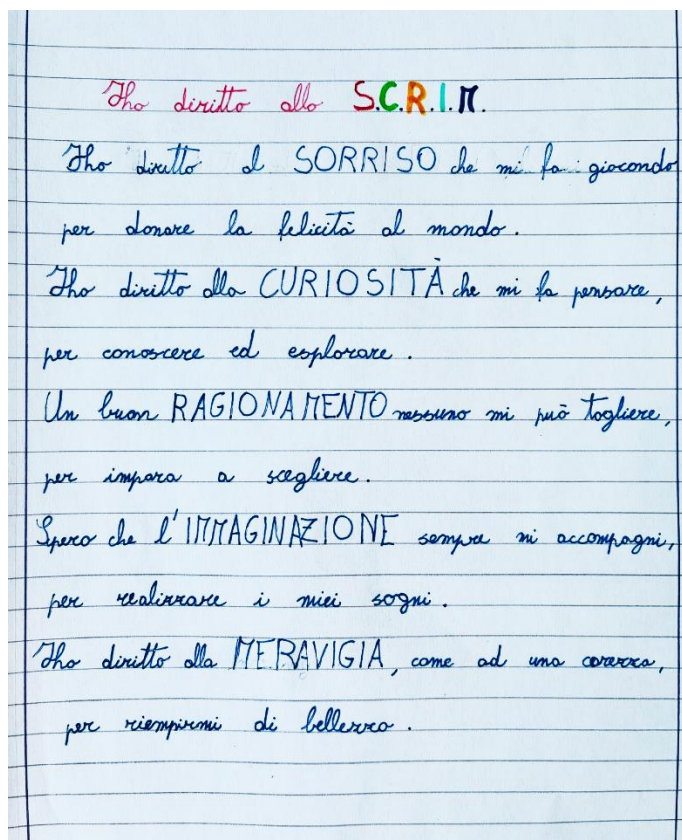 Ho diritto allo S.C.R.I.M.
Ho diritto al SORRISO che mi fa giocondo
per donare la felicità al mondo.
Ho diritto alla CURIOSITÀ che mi fa pensare,
per conoscere ed esplorare.
Un buon RAGIONAMENTO nessuno mi può togliere,
per impara a scegliere.
Spero che l'IMMAGINAZIONE sempre mi accompagni,
per realizzare i miei sogni.
Ho diritto alla MERAVIGIA, come ad una carezza,
per riempirmi di bellezza.